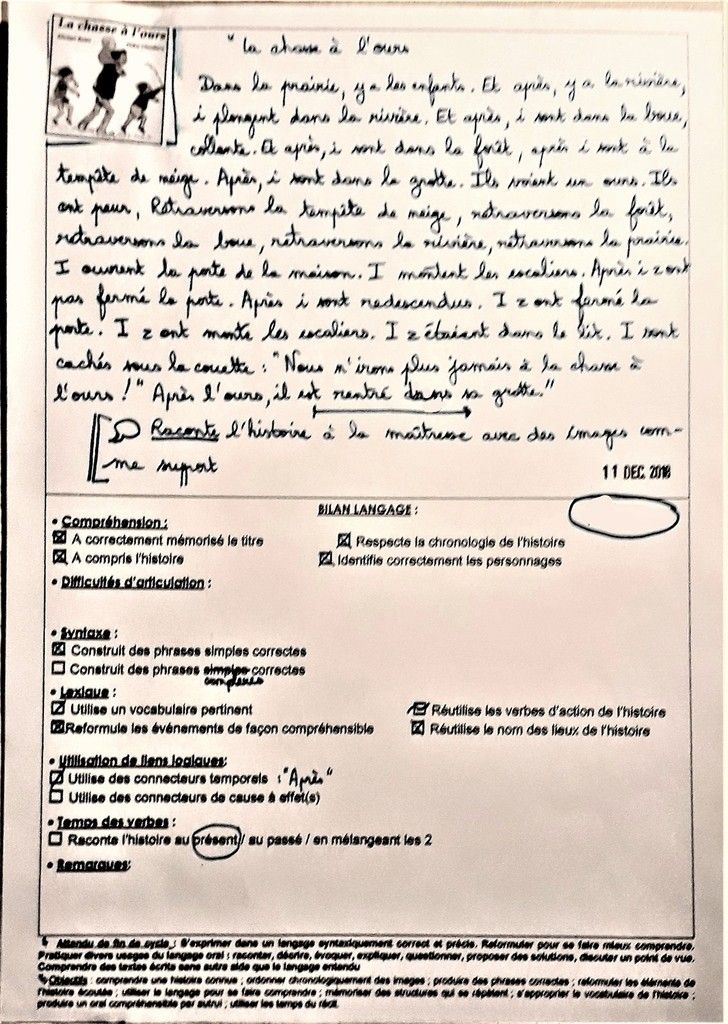 La chasse à l'ours
" La chasse à l'ours
Dans la prairie, y a les enfants. Et après, y a la rivière,
i plongent dans la rivière. Et après, i sont dans la boue,
collante. Et après, i sont dans la forêt, après i sont à la
tempête de neige. Après, i sont dans la grotte. Ils voient un ours. Ils
ont peur, Retraversons la tempête de neige, retraversons la forêt,
retraversons la boue, retraversons la rivière, retraversons la prairie.
I ouvrent la porte de la maison. I montent les escaliers. Après i z ont
pas fermé la porte. Après i sont redescendus. I z ont fermé la
porte. I z ont monté les escaliers. I z étaient dans le lit. I sont
cachés sous la couette : "Nous n'irons plus jamais à la chasse à
l'ours !" Après l'ours, il est rentré dans sa grotte."
Raconte l'histoire à la maîtresse avec des images com-
me support
11 DEC 2018
BILAN LANGAGE :
• Compréhension :
A correctement mémorisé le titre
Respecte la chronologie de l'histoire
A compris l'histoire
Identifie correctement les personnages
• Difficultés d'articulation :
• Syntaxe :
Construit des phrases simples correctes
Construit des phrases simples correctes
complexes
• Lexique :
Utilise un vocabulaire pertinent
Réutilise les verbes d'action de l'histoire
Reformule les événements de façon compréhensible
Réutilise le nom des lieux de l'histoire
• Utilisation de liens logiques:
Utilise des connecteurs temporels : "Après"
Utilise des connecteurs de cause à effet(s)
• Temps des verbes :
Raconte l'histoire au présent / au passé / en mélangeant les 2
• Remarques:
Attendu de fin de cycle : S'exprimer dans un langage syntaxiquement correct et précis. Reformuler pour se faire mieux comprendre.
Pratiquer divers usages du langage oral : raconter, décrire, évoquer, expliquer, questionner, proposer des solutions, discuter un point de vue.
Comprendre des textes écrits sans autre aide que le langage entendu
Objectifs : comprendre une histoire connue ; ordonner chronologiquement des images ; produire des phrases correctes ; reformuler les éléments de
l'histoire écoutée ; utiliser le langage pour se faire comprendre ; mémoriser des structures qui se répètent ; s'approprier le vocabulaire de l'histoire ;
produire un oral compréhensible par autrui ; utiliser les temps du récit.